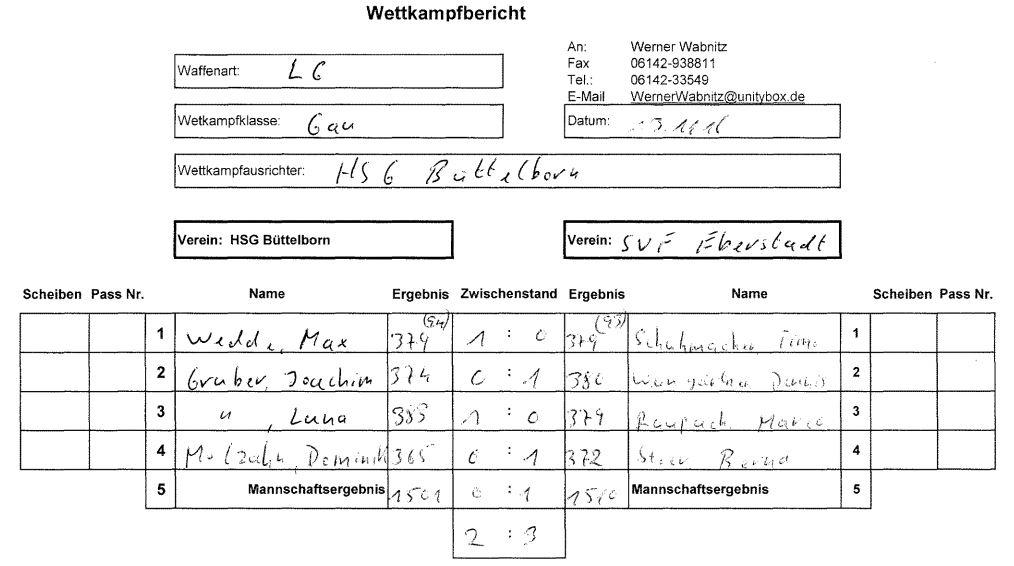 Wettkampfbericht
An: Werner Wabnitz
Fax 06142-938811
Tel.: 06142-33549
E-Mail WernerWabnitz@unitybox.de
Waffenart: LG
Wetkampfklasse: Gau
Datum:
Wettkampfausrichter: HSG Büttelborn
Verein: HSG Büttelborn
Verein: SVF Eberstadt
Scheiben Pass Nr. Name Ergebnis Zwischenstand Ergebnis Name Scheiben Pass Nr.
1 Wedde, Max 379 (94) 1 : 0 379 (93) Schuhmacher Timo 1
2 Gruber, Joachim 374 0 : 1 380 2
3 " , Luna 383 1 : 0 379 Raupach Marco 3
4 Molzahn, Dominik 365 0 : 1 372 4
5 Mannschaftsergebnis 1501 0 : 1 1510 Mannschaftsergebnis 5
2 : 3